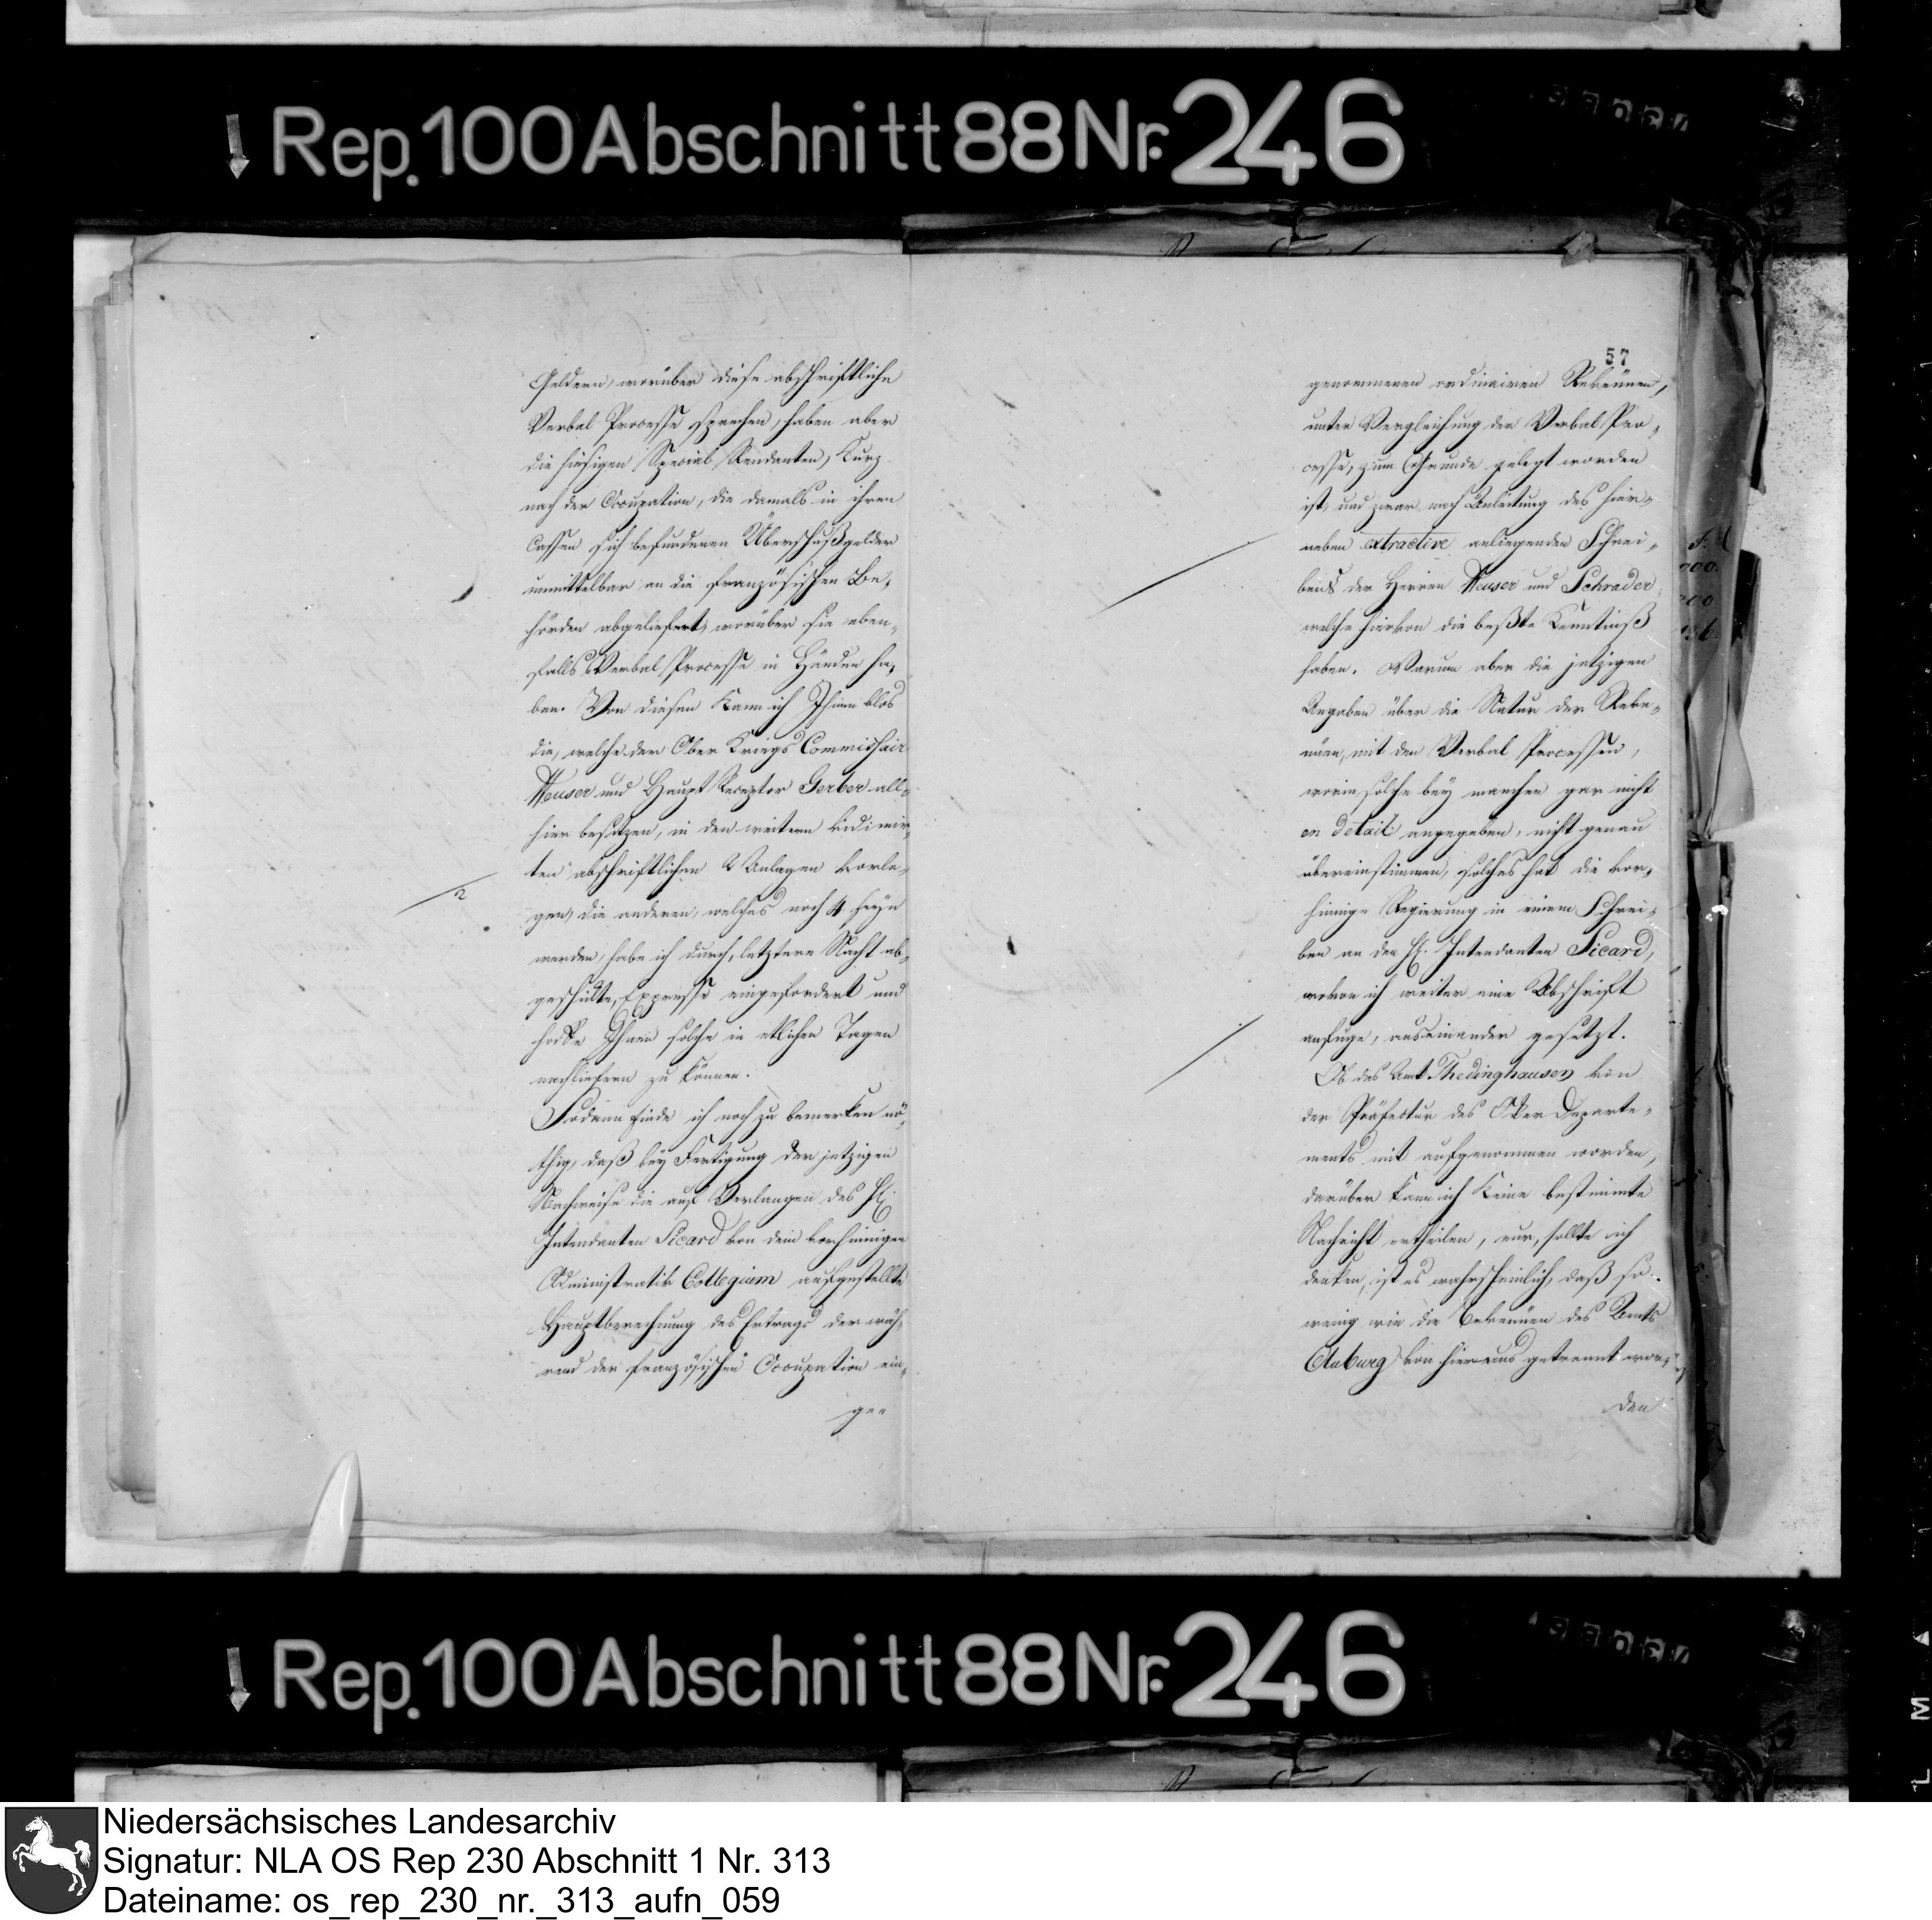 Rep. 100 Abschnitt 88 Nr. 246
Geldern, worüber diese abschriftliche
Verbal Processe sprechen, haben aber
die hiesigen Special Rendanten, kurz
nach der Occupation, die damals in ihren
Cassen sich befundenen Überschußgelder
unmittelbar an die französischen Be-
hörden abgeliefert, worüber sie eben-
falls Verbal Processe in Händen ha-
ben. Von diesen kann ich Ihnen blos
die, welche der Ober Kriegs Commissair
Meuser und Haupt Receptor Gerber all-
hier besitzen, in den weitern vidimir-
ten abschriftlichen 2 Anlagen vorle-
2
gen, die anderen, welches noch 4 seyn
werden, habe ich durch, letztere Nacht ab-
geschickte, Expresse eingefordert und
hoffe Ihnen solche in etlichen Tagen
nachliefern zu können.
Sodann finde ich noch zu bemerken nö-
thig, daß bey Fertigung der jetzigen
Nachweise die auf Verlangen des H.
Intendanten Sicard von dem vorhinnigen
Administrativ Collegium aufgestellte
Hauptberechnung des Ertrags der wäh-
rend der französischen Occupation ein-
gen
57
genommenen ordinairen Revenüen,
unter Vergleichung der Verbal Pro-
cesse, zum Grunde gelegt worden
ist, und zwar nach Anleitung des hier-
neben extractive anliegenden Schrei-
bens der Herren Meuser und Schrader
welche hievon die beßte Kenntniß
haben. Warum aber die jetzigen
Angaben über die Natur der Reve-
nüen, mit den Verbal Processen,
worin solche bey manchen gar nicht
en detail angegeben, nicht genau
übereinstimmen, solches hat die vor-
hinnige Regierung in einem Schrei-
ben an den H. Intendanten Sicard,
wovon ich weiter eine Abschrift
anfüge, auseinander gesetzt.
Ob das Amt Thedinghausen von
der Präfectur des Oker Departe-
ments mit aufgenommen worden,
darüber kann ich keine bestimmte
Nachricht ertheilen, nur, sollte ich
denken, ist es wahrscheinlich, daß so
wenig wie die Revenüen des Amts
Auburg von hier aus getrennt wor-
den
Rep. 100 Abschnitt 88 Nr. 246
Niedersächsisches Landesarchiv
Signatur: NLA OS Rep 230 Abschnitt 1 Nr. 313
Dateiname: os_rep_230_nr._313_aufn_059